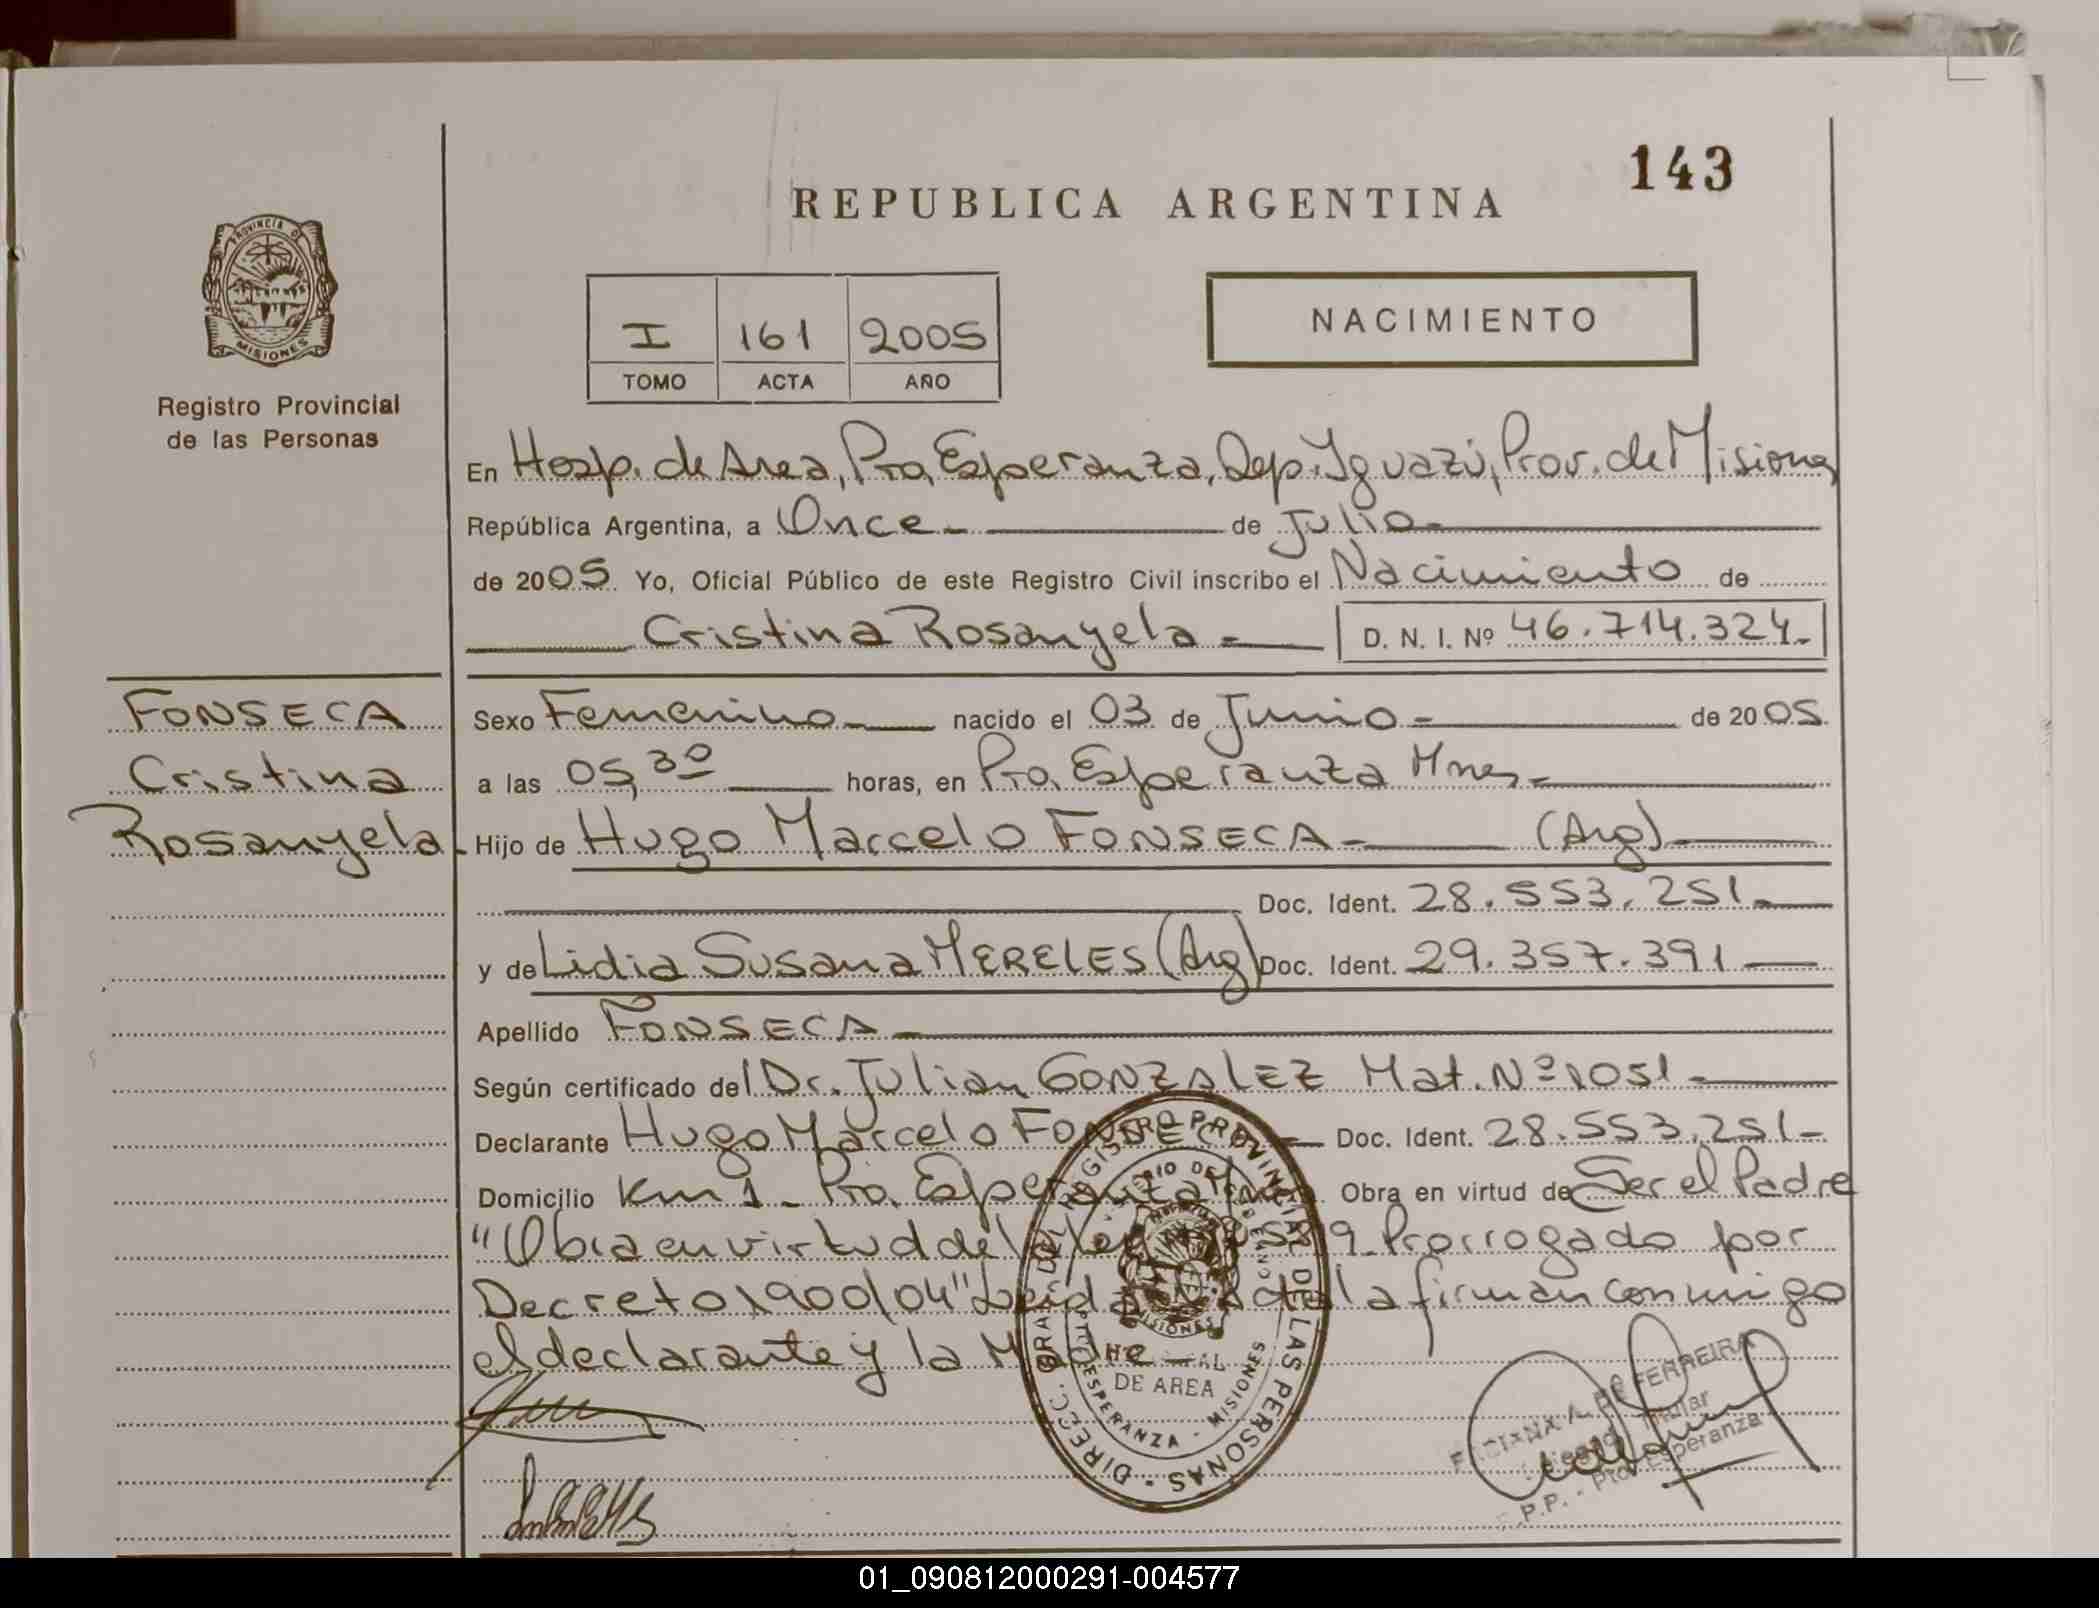 143
REPUBLICA ARGENTINA
PROVINCIA DE
MISIONES
Registro Provincial
de las Personas
I 161 2005
TOMO ACTA AÑO
NACIMIENTO
En Hosp. de Area, Pto. Esperanza, Dep. Iguazú, Prov. de Misiones
República Argentina, a Once de Julio
de 2005. Yo, Oficial Público de este Registro Civil inscribo el Nacimiento de
Cristina Rosanyela D. N. I. Nº 46.714.324
FONSECA
Cristina
Rosanyela
Sexo Femenino nacido el 03 de Junio de 2005
a las 05,30 horas, en Pto. Esperanza Mnes
Hijo de Hugo Marcelo FONSECA (Arg)
Doc. Ident. 28.553.251
y de Lidia Susana MERELES (Arg) Doc. Ident. 29.357.391
Apellido FONSECA
Según certificado del Dr. Julian GONZALEZ Mat. Nº 1051
Declarante Hugo Marcelo FONSECA Doc. Ident. 28.553.251
Domicilio Km 1 - Pto. Esperanza Mnes. Obra en virtud de Ser el Padre
"Obra en virtud del Prorrogado por
Decreto 1900/04" Leida el Acta la firman conmigo
el declarante y la
DIRECC. GRAL. DEL REGISTRO PROVINCIAL DE LAS PERSONAS
MISIONES
DE AREA
PTO. ESPERANZA - MISIONES
FERREIRA
Titular
R.P.P. - Pto. Esperanza
01_090812000291-004577